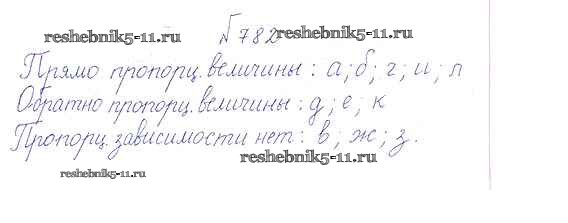 №782
reshebnik5-11.ru
reshebnik5-11.ru
Прямо пропорц. величины: а; б; г; и; л
Обратно пропорц. величины: д; е; к
Пропорц. зависимости нет: в; ж; з.
reshebnik5-11.ru
reshebnik5-11.ru